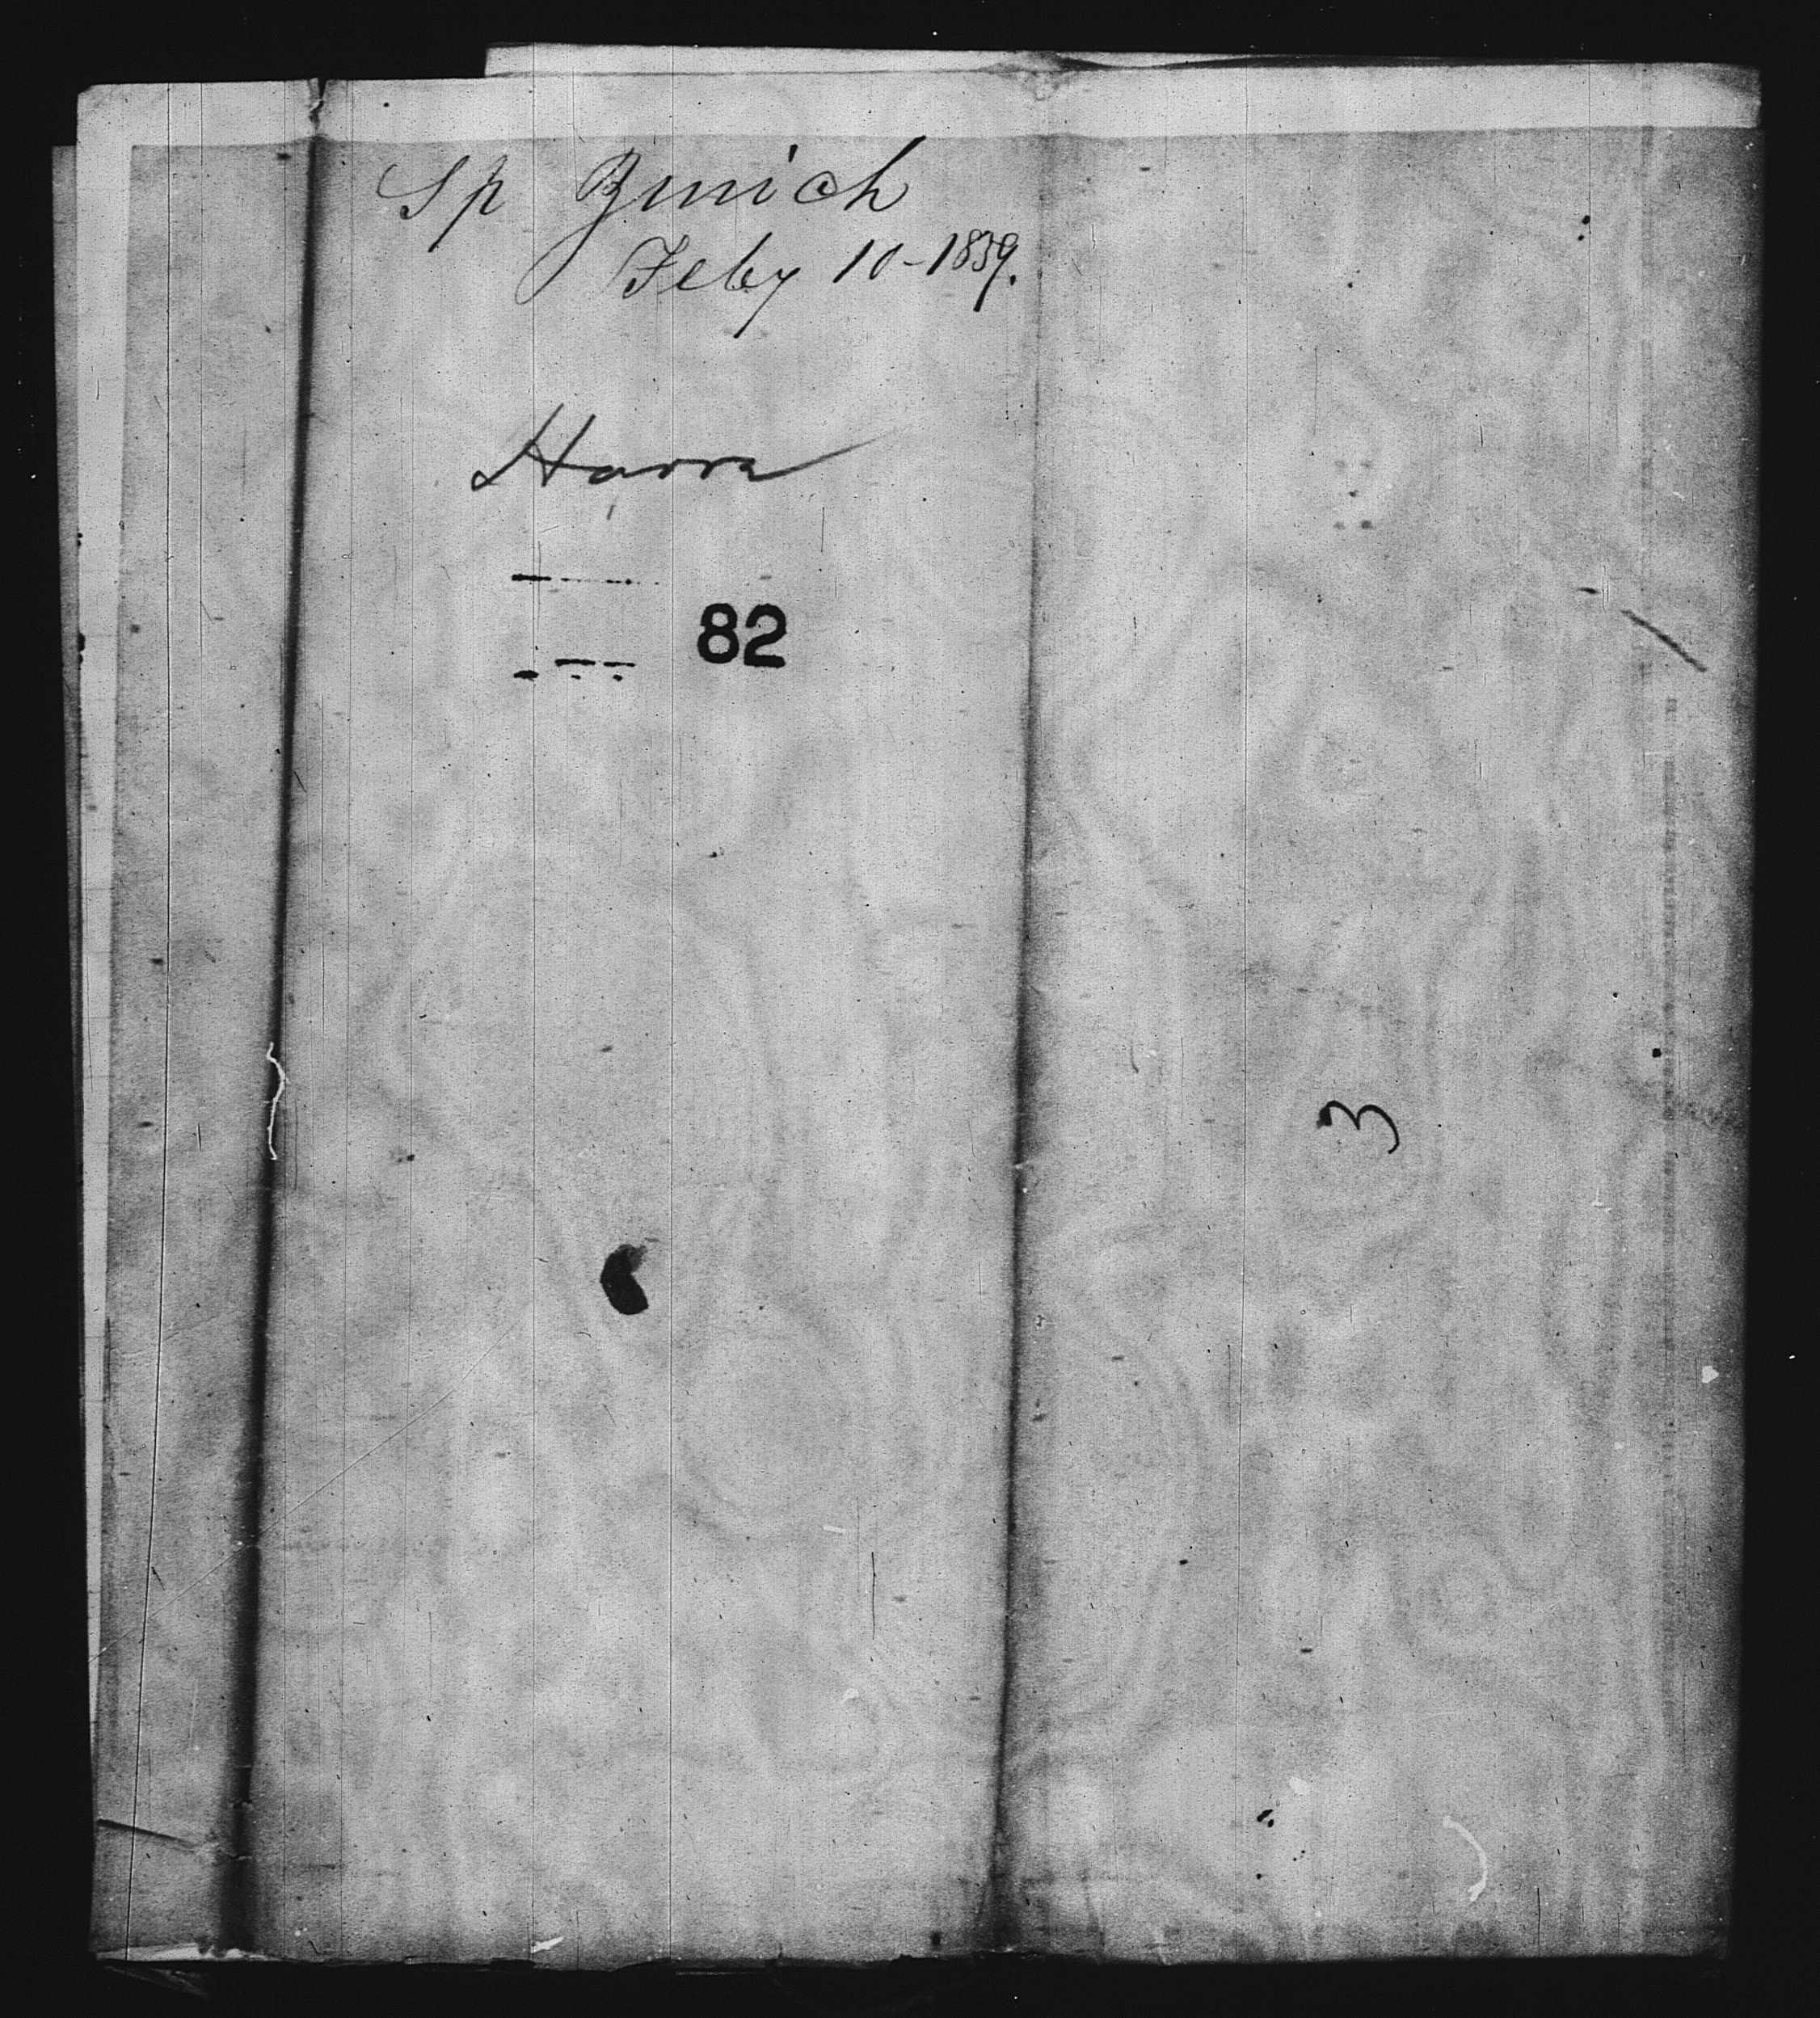 Sp Zurich
Feby 10-1839.
Havra
82
3